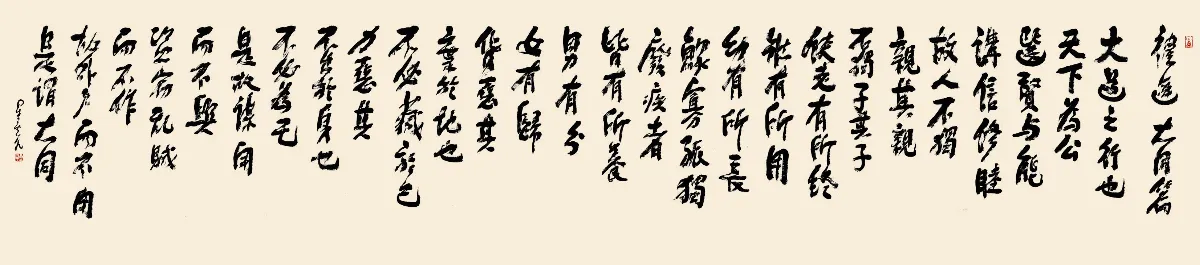 禮運 大同篇
大道之行也
天下為公
選賢与能
講信修睦
故人不獨
親其親
不獨子其子
使老有所終
壯有所用
幼有所長
鰥寡孤獨
廢疾者
皆有所養
男有分
女有歸
貨惡其
棄於地也
不必藏於己
力惡其
不出於身也
不必為己
是故謀閉
而不興
盜竊亂賊
而不作
故外户而不閉
是謂大同